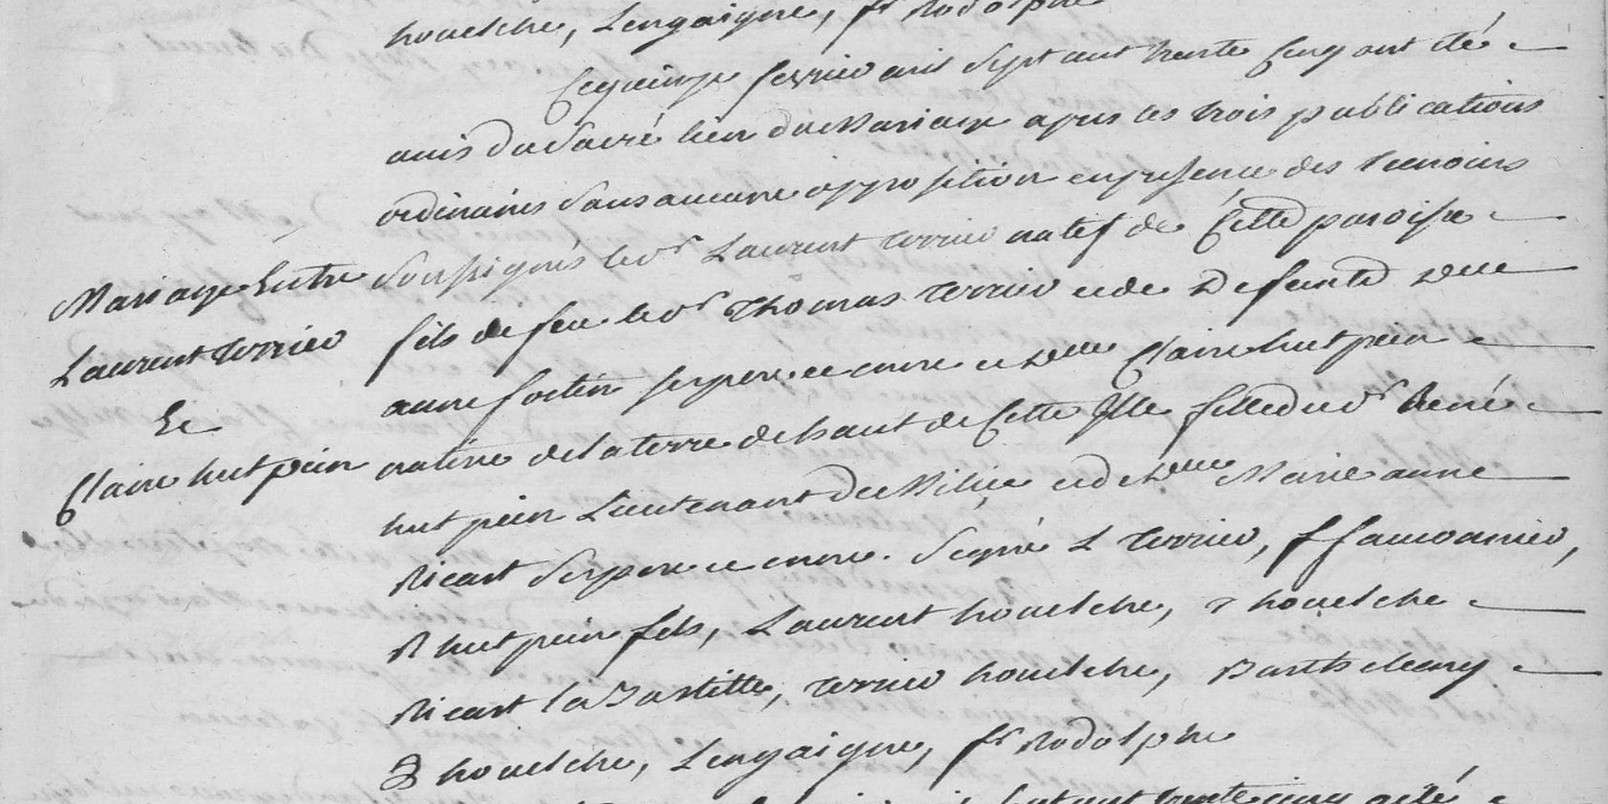 houelche, Lengaigne, fr Rodolphe
Ce quinze fevrier mil sept cent trente cinq ont été
unis du Sacré lien du Mariage apres les trois publications
ordinaires Sans aucune opposition en presence des temoins
Mariage Entre
Soussignés le sr Laurent terrier natif de Cette paroisse
Laurent terrier
fils de feu le sr Thomas terrier et de Defunte Delle
Et
anne fortin ses pere et mere et Delle Claire hutpein
Claire hutpein
native de la terre de haut de Cette Isle fille du sr René
hutpein Lieutenant de Milice et de Delle Marie anne
Ricart Ses pere et mere. Signé L terrier, f
R hutpein fils, Laurent houelche, houelche
Ricart la Jartille, terrier houelche,
houelche, Lengaigne, fr Rodolphe
trente cinq a été